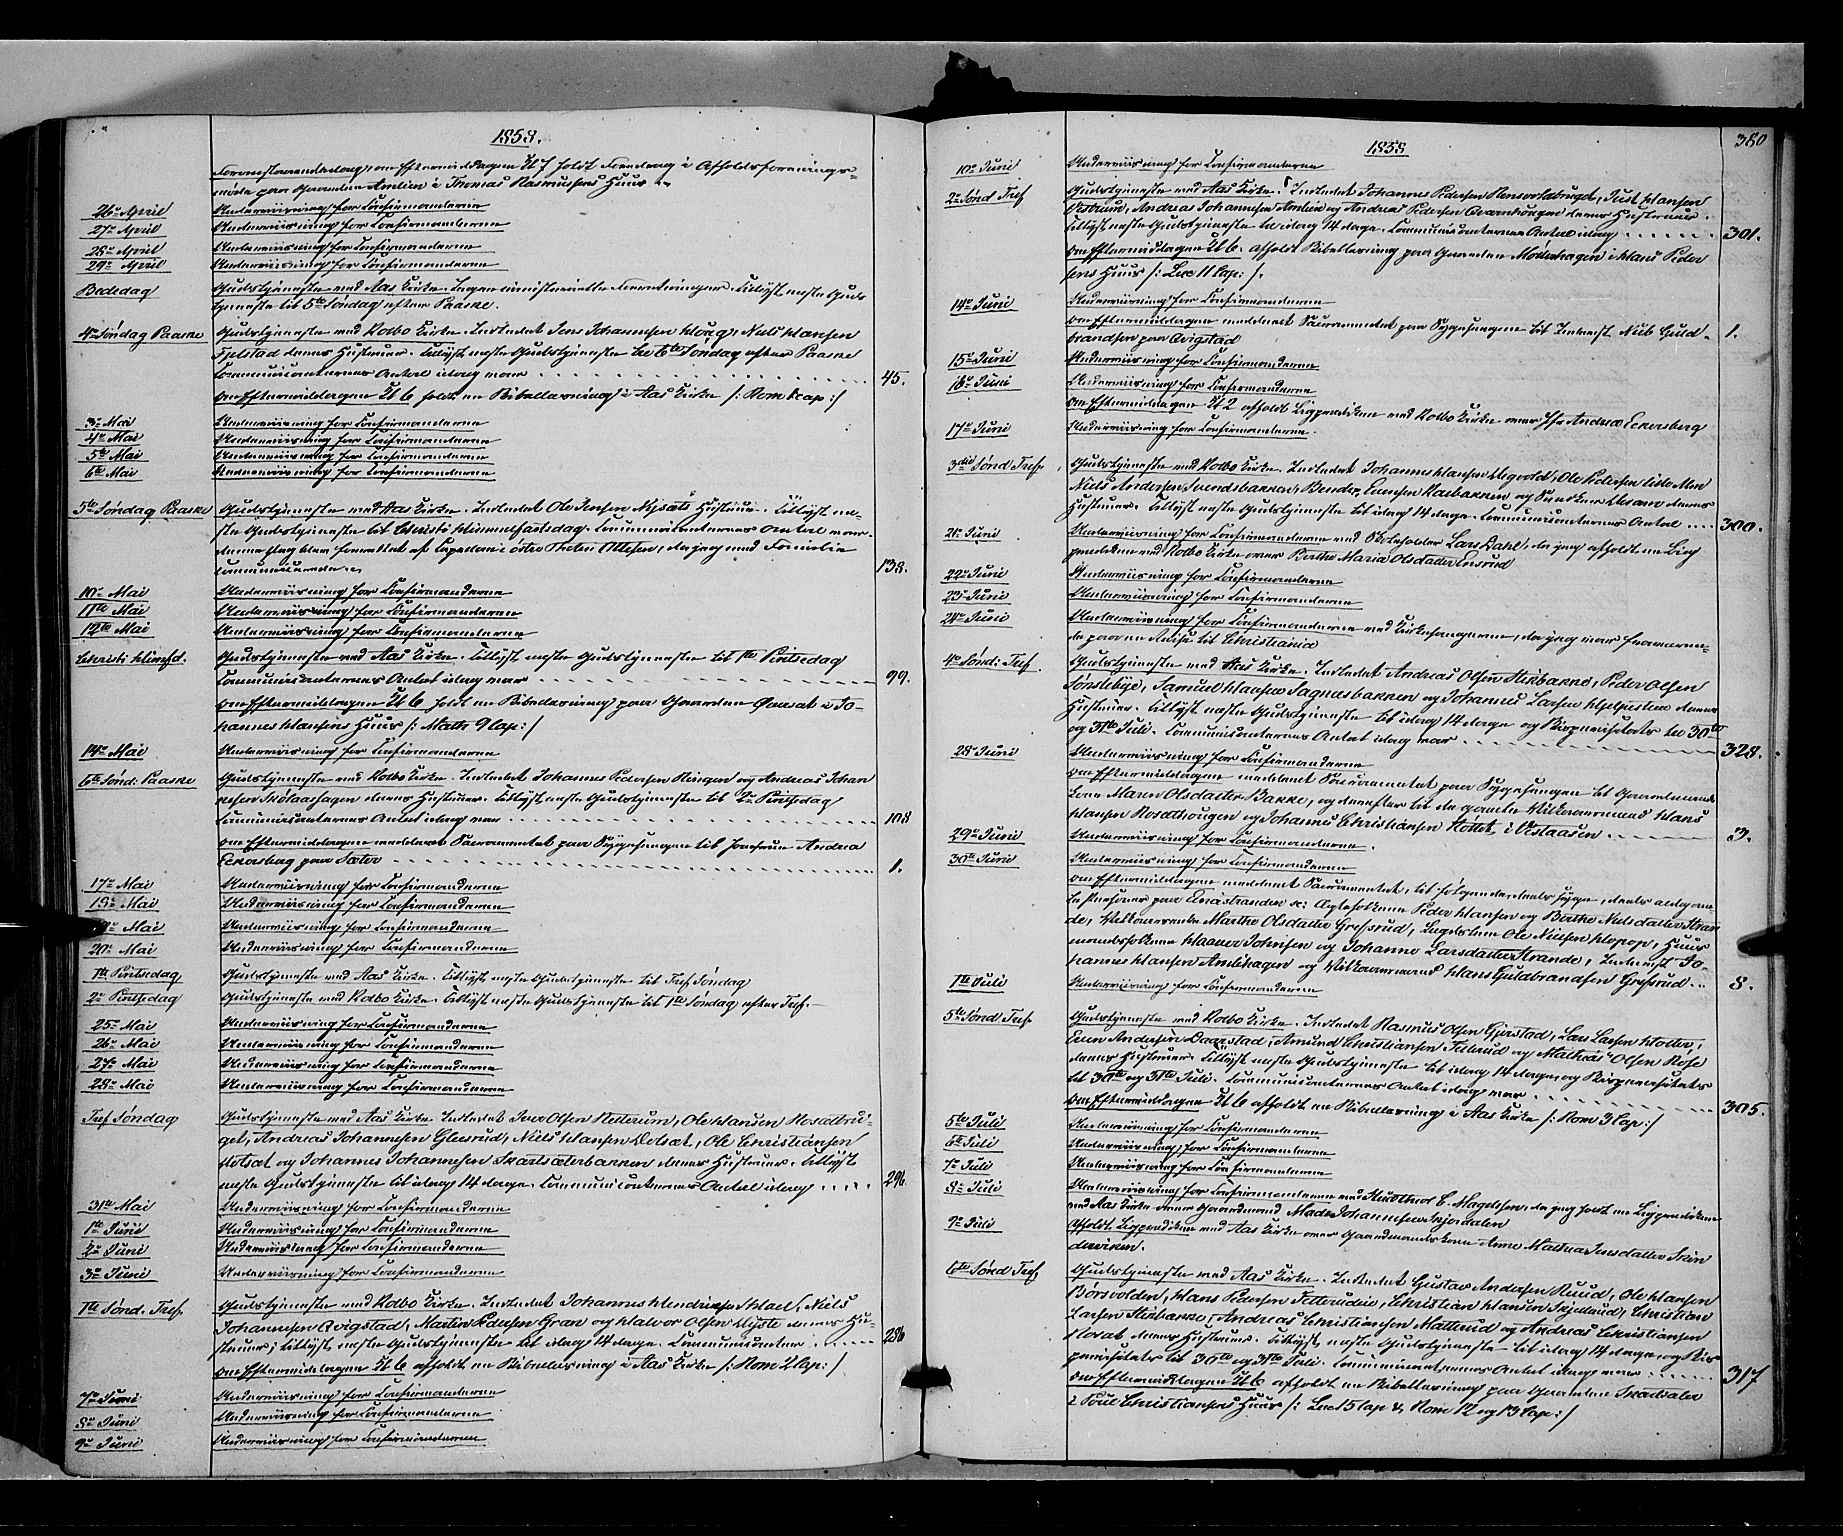 1858.
om Eftermiddagen Kl 7 holdt Foredrag i Afholdsforenings-
møde paa Gaarden Amlien i Thomas Rasmussens Huus
26de April Underviisning for Confirmanderne
27de April Underviisning for Confirmanderne
28de April Underviisning for Confirmanderne
29de April Underviisning for Confirmanderne
Bededag Gudstjeneste ved Aas Kirke. Ingen ministerielle Forretninger. Tillyst næste Guds
tjeneste til 5te Søndag efter Paaske.
4de Søndag Paaske Gudstjeneste ved Kolbo Kirke. Indledet Jens Johannesen Haug, Niels Hansen
Fjelstad deres Hustruer. Tillyst næste Gudstjeneste til 6te Søndag efter Paaske
Communicanternes Antal idag var 45.
om Eftermiddagen Kl 6 holdt en Bibellæsning i Aas Kirke /: Rom 1 Cap :/
3de Mai Underviisning for Confirmanderne
4de Mai Underviisning for Confirmanderne
5te Mai Underviisning for Confirmanderne
6te Mai Underviisning for Confirmanderne
5te Søndag Paaske Gudstjeneste ved Aas Kirke. Indledet Ole Jensen Nysæts Hustrue. Tillyst næ-
ste Gudstjeneste til Christi Himmelfartsdag. Communicanternes Antal var
denne Dag blev forrettet af Capellan i østre Thoten Ottesen, da jeg med Familie
communicerede 138.
10de Mai Underviisning for Confirmanderne
11te Mai Underviisning for Confirmanderne
12te Mai Underviisning for Confirmanderne
Christi Himfd. Gudstjeneste ved Aas Kirke. Tillyst næste Gudstjeneste til 1ste Pintsedag
Communicanternes Antal idag var 99.
om Eftermiddagen Kl 6 holdt en Bibellæsning paa Gaarden Qværsat i Jo-
hannes Hansens Huus /: Math 9 Cap :/
14de Mai Underviisning for Confirmanderne
6te Sønd: Paaske Gudstjeneste ved Kolbo Kirke. Indledet Johannes Pedersen Ringen og Andreas Johan
nesen Skølaashagen deres Hustruer. Tillyst næste Gudstjeneste til 2den Pintsedag
Communicanternes Antal idag var 108
om Eftermiddagen meddeelt Sacramentet paa Sygesengen til Jomfrue Andrea
Eckersberg paa Sæter 1.
17de Mai Underviisning for Confirmanderne
18de Mai Underviisning for Confirmanderne
19de Mai Underviisning for Confirmanderne
20de Mai Underviisning for Confirmanderne
1ste Pintsedag Gudstjeneste ved Aas Kirke. Tillyst næste Gudstjeneste til Tref Søndag
2den Pintsedag Gudstjeneste ved Kolbo Kirke. Tillyst næste Gudstjeneste til 1ste Søndag efter Tref.
25de Mai Underviisning for Confirmanderne
26de Mai Underviisning for Confirmanderne
27de Mai Underviisning for Confirmanderne
28de Mai Underviisning for Confirmanderne
Tref Søndag Gudstjeneste ved Aas Kirke. Indledet Iver Olsen Netterum, Ole Hansen
Andreas Johannesen Gleesrud, Niels Hansen Dotsat, Ole Christiansen
Hotsat og Johannes Johannesen Skartsæterbakken deres Hustruer. Tillyst
næste Gudstjeneste til idag 14 dage. Communicanternes Antal idag 296.
31te Mai Underviisning for Confirmanderne
1ste Juni Underviisning for Confirmanderne
2den Juni Underviisning for Confirmanderne
3de Juni Underviisning for Confirmanderne
1ste Sønd. Tref. Gudstjeneste ved Kolbo Kirke. Indledet Johannes Hendriksen Niels
Johannesen Qvigstad, Martin Pedersen Gran og Halvor Olsen deres Hu-
struer; tillyst næste Gudstjeneste til idag 14 dage. Communicanter 286
om Eftermiddagen Kl 6 afholdt en Bibellæsning i Aas Kirke /: Rom 2 Cap: /
7de Juni Underviisning for Confirmanderne
8de Juni Underviisning for Confirmanderne
9de Juni Underviisning for Confirmanderne
1858
380
10de Juni Underviisning for Confirmanderne
2den Sønd Tref Gudstjeneste ved Aas Kirke. Indledet Johannes Pedersen Just Hansen
Andreas Johannesen Amlien og Andreas Pedersen Qværnhaugen deres Hustruer.
Tillyst næste Gudstjeneste til idag 14 dage. Communicanternes Antal idag 301.
om Eftermiddagen Kl 6. afholdt Bibellæsning paa Gaarden Mødenhagen i Hans Peder
sens Huus /: Luc 11 Cap: /.
14de Juni Underviisning for Confirmanderne
om Eftermiddagen meddeelt Sacramentet paa Sygesengen til Inderst Niels Guld-
brandsen paa Qvigstad 1.
15de Juni Underviisning for Confirmanderne
16de Juni Underviisning for Confirmanderne
om Eftermiddagen Kl 2 afholdt Liigprædiken ved Kolbo Kirke over Jfr Andrea Eckersberg
17de Juni Underviisning for Confirmanderne.
3die Sønd Tref. Gudstjeneste ved Kolbo Kirke. Indledet Johannes Hansen Ole Pedersen
Niels Andersen Svendsbakken, og deres
Hustruer. Tillyst næste Gudstjeneste til idag 14 dage. Communicanternes Antal 300.
21de Juni Underviisning for Confirmanderne ved Skoleholder Lars Dahl, da jeg afholdt en Liig
prædiken ved Kolbo Kirke over Berthe Maria Olsdatter Ensrud
22de Juni Underviisning for Confirmanderne
23de Juni Underviisning for Confirmanderne
24de Juni Underviisning for Confirmanderne ved Kirkesangeren, da jeg var fraværen-
de paa en Reise til Christiania
4de Sønd: Tref. Gudstjeneste ved Aas Kirke. Indledet Andreas Olsen Stikbakke, Peder Olsen
Sønsteby, Samuel Hansen Sagnæsbakken og Johannes Larsen deres
Hustruer. Tillyst næste Gudstjeneste til idag 14 dage og Bispevisitats til 30te
og 31te Juli. Communicanternes Antal idag var 328.
28de Juni Underviisning for Confirmanderne
om Eftermiddagen meddeelt Sacramentet paa Sygesengen til Gaardmands
kone Maren Olsdatter Bakke, og derefter til de gamle Vilkaarsmænd Hans
Hansen Rosethougen og Johannes Christiansen Hottet, i Vestaasen 3.
29de Juni Underviisning for Confirmanderne.
30te Juni Underviisning for Confirmanderne
om Eftermiddagen meddeelt Sacramentet, til følgende, deels syge, deels
Personer paa Einastranden Ægtefolkene Peder Hansen og Berthe Nielsdatter
Marthe Olsdatter Grefsrud, Lægdslem Ole Nielsen Huus
mandsfolkene Haaver Johnsen og Johanne Larsdatter Strande, Inderst Jo-
hannes Hansen Amlihagen og Vilkaarsmand Hans Guldbrandsen Grefsrud 8.
1ste Juli Underviisning for Confirmanderne
5te Sønd Tref. Gudstjeneste ved Kolbo Kirke. Indledet Rasmus Olsen Gjørstad, Lars Larsen Hotter,
Even Andersen Daarstad, Amund Christiansen Fillrud og Mathias Olsen Røise
deres Hustruer. Tillyst næste Gudstjeneste til idag 14 dage, og Bispevisitats
til 30te og 31te Juli. Communicanternes Antal idag var 305.
om Eftermiddagen Kl 6 afholdt en Bibellæsning i Aas Kirke /: Rom 3 Cap: /
5te Juli Underviisning for Confirmanderne
6te Juli Underviisning for Confirmanderne
7de Juli Underviisning for Confirmanderne
8de Juli Underviisning for Confirmanderne ved Student E. Magelssen, da jeg holdt en Liigprædiken
ved Aas Kirke over Gaardmand Mads Johannesen Skjordalen
9de Juli Afholdt Liigprædiken ved Aas Kirke over Gaardmandskone Anne Mathea Jensdatter Skin
derviken.
6te Sønd Tref Gudstjeneste ved Aas Kirke. Indledet Gustav Andersen Ruud, Ole Hansen
Børsvolden, Hans Pedersen Fetterudeie, Christian Hansen Skjelrud, Christian
Larsen Stikbakke, Andreas Christiansen Mattrud og Andreas Christiansen
deres Hustruer. Tillyst næste Gudstjeneste til idag 14 dage, og Bis
pevisitats til 30te og 31te Juli. Communicanternes Antal idag var 317
om Eftermiddagen Kl 6 afholdt en Bibellæsning paa Gaarden
i Poul Christiansens Huus /: Luc 15 Cap & Rom 12 og 13 Cap: /